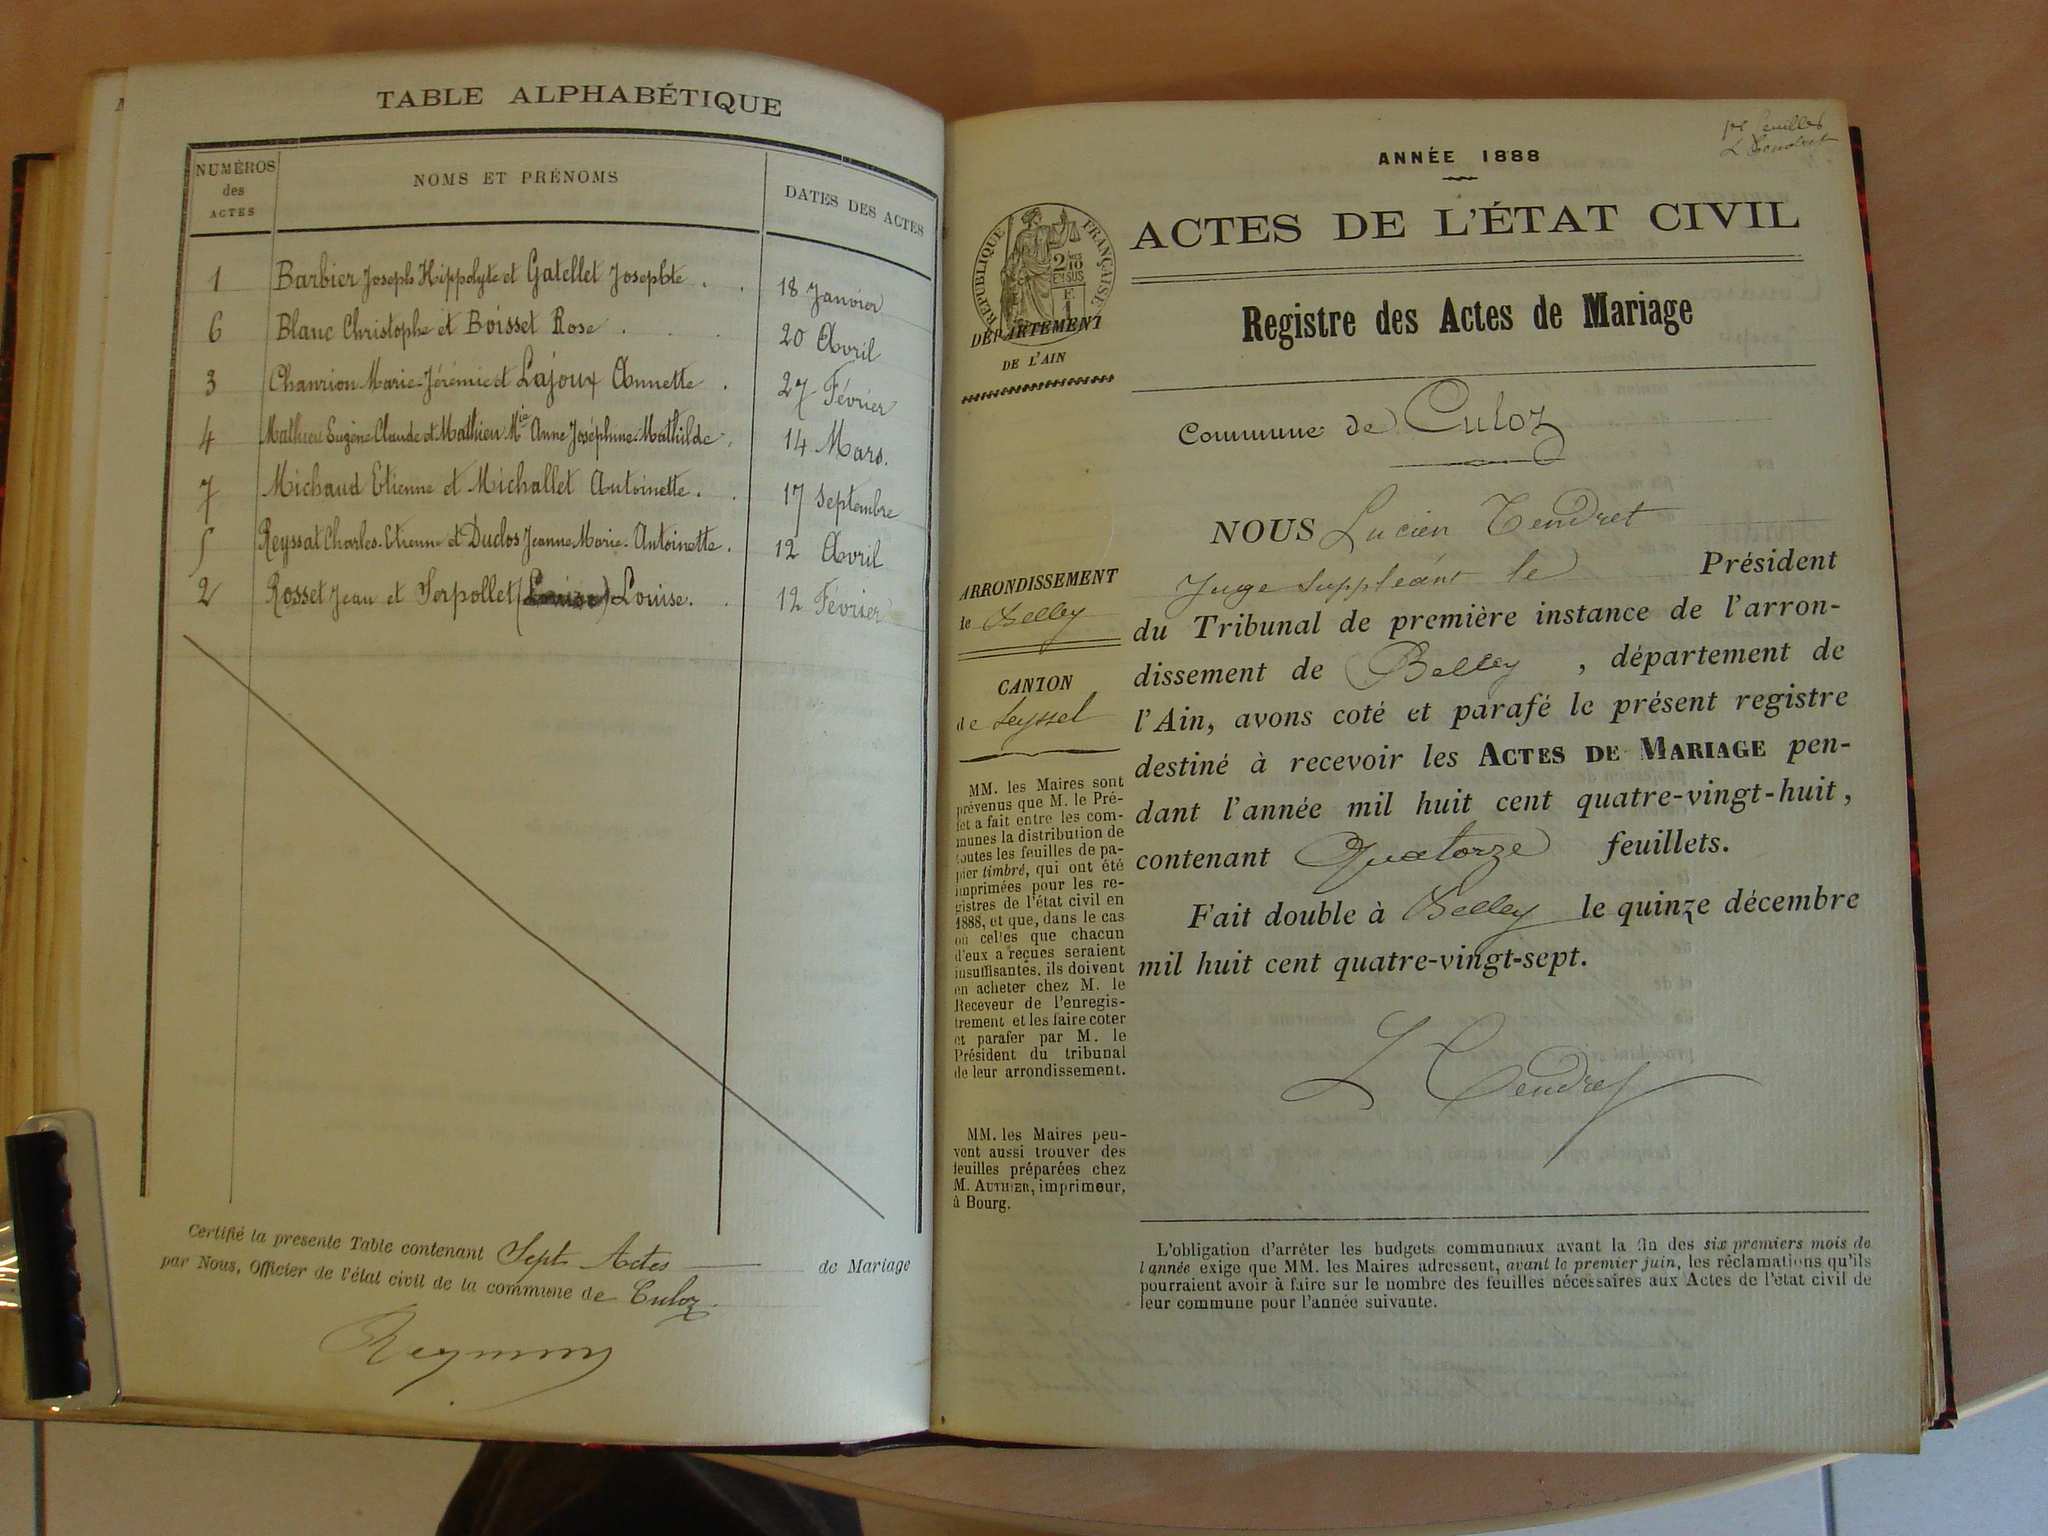 TABLE ALPHABÉTIQUE
NUMÉROS des ACTES
NOMS ET PRÉNOMS
DATES DES ACTES
1 Barbier Joseph Hippolyte et Gatellet Josephte . . 18 Janvier
6 Blanc Christophe et Boisset Rose . . . 20 Avril
3 Chanrion Marie-Jérémie et Lajoux Annette . 27 Février
4 Mathieu Eugène Claude et Mathieu Mie Anne Joséphine-Mathilde . 14 Mars.
7 Michaud Etienne et Michallet Antoinette . . 17 Septembre
5 Reyssat Charles-Etienne et Duclos Jeanne Marie-Antoinette . 12 Avril
2 Rosset Jean et Serpollet Louise. . 12 Février
Certifié la présente Table contenant Sept Actes de Mariage
par Nous, Officier de l'état civil de la commune de Culoz.
ANNÉE 1888
RÉPUBLIQUE FRANÇAISE
2/10
EN SUS
F.
1
ACTES DE L'ÉTAT CIVIL
Registre des Actes de Mariage
DÉPARTEMENT
DE L'AIN
Commune de Culoz
ARRONDISSEMENT
de Belley
CANTON
de Seyssel
MM. les Maires sont
prévenus que M. le Pré-
fet a fait entre les com-
munes la distribution de
toutes les feuilles de pa-
pier timbré, qui ont été
imprimées pour les re-
gistres de l'état civil en
1888, et que, dans le cas
où celles que chacun
d'eux a reçues seraient
insuffisantes, ils doivent
en acheter chez M. le
Receveur de l'enregis-
trement et les faire coter
et parafer par M. le
Président du tribunal
de leur arrondissement.
MM. les Maires peu-
vent aussi trouver des
feuilles préparées chez
M. AUTHIER, imprimeur,
à Bourg.
NOUS Lucien Tendret
Juge suppléant le Président
du Tribunal de première instance de l'arron-
dissement de Belley, département de
l'Ain, avons coté et parafé le présent registre
destiné à recevoir les ACTES DE MARIAGE pen-
dant l'année mil huit cent quatre-vingt-huit,
contenant Quatorze feuillets.
Fait double à Belley le quinze décembre
mil huit cent quatre-vingt-sept.
L Tendret
L'obligation d'arrêter les budgets communaux avant la fin des six premiers mois de
l'année exige que MM. les Maires adressent, avant le premier juin, les réclamations qu'ils
pourraient avoir à faire sur le nombre des feuilles nécessaires aux Actes de l'état civil de
leur commune pour l'année suivante.